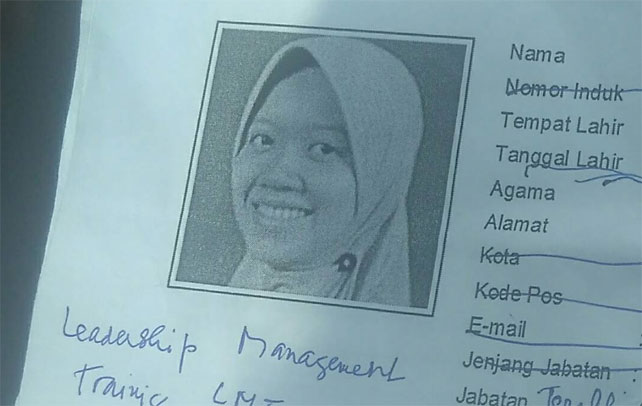 Nama
Nomor Induk
Tempat Lahir
Tanggal Lahir
Agama
Alamat
Kota
Kode Pos
E-mail
Jenjang Jabatan
Jabatan
Leadership Management